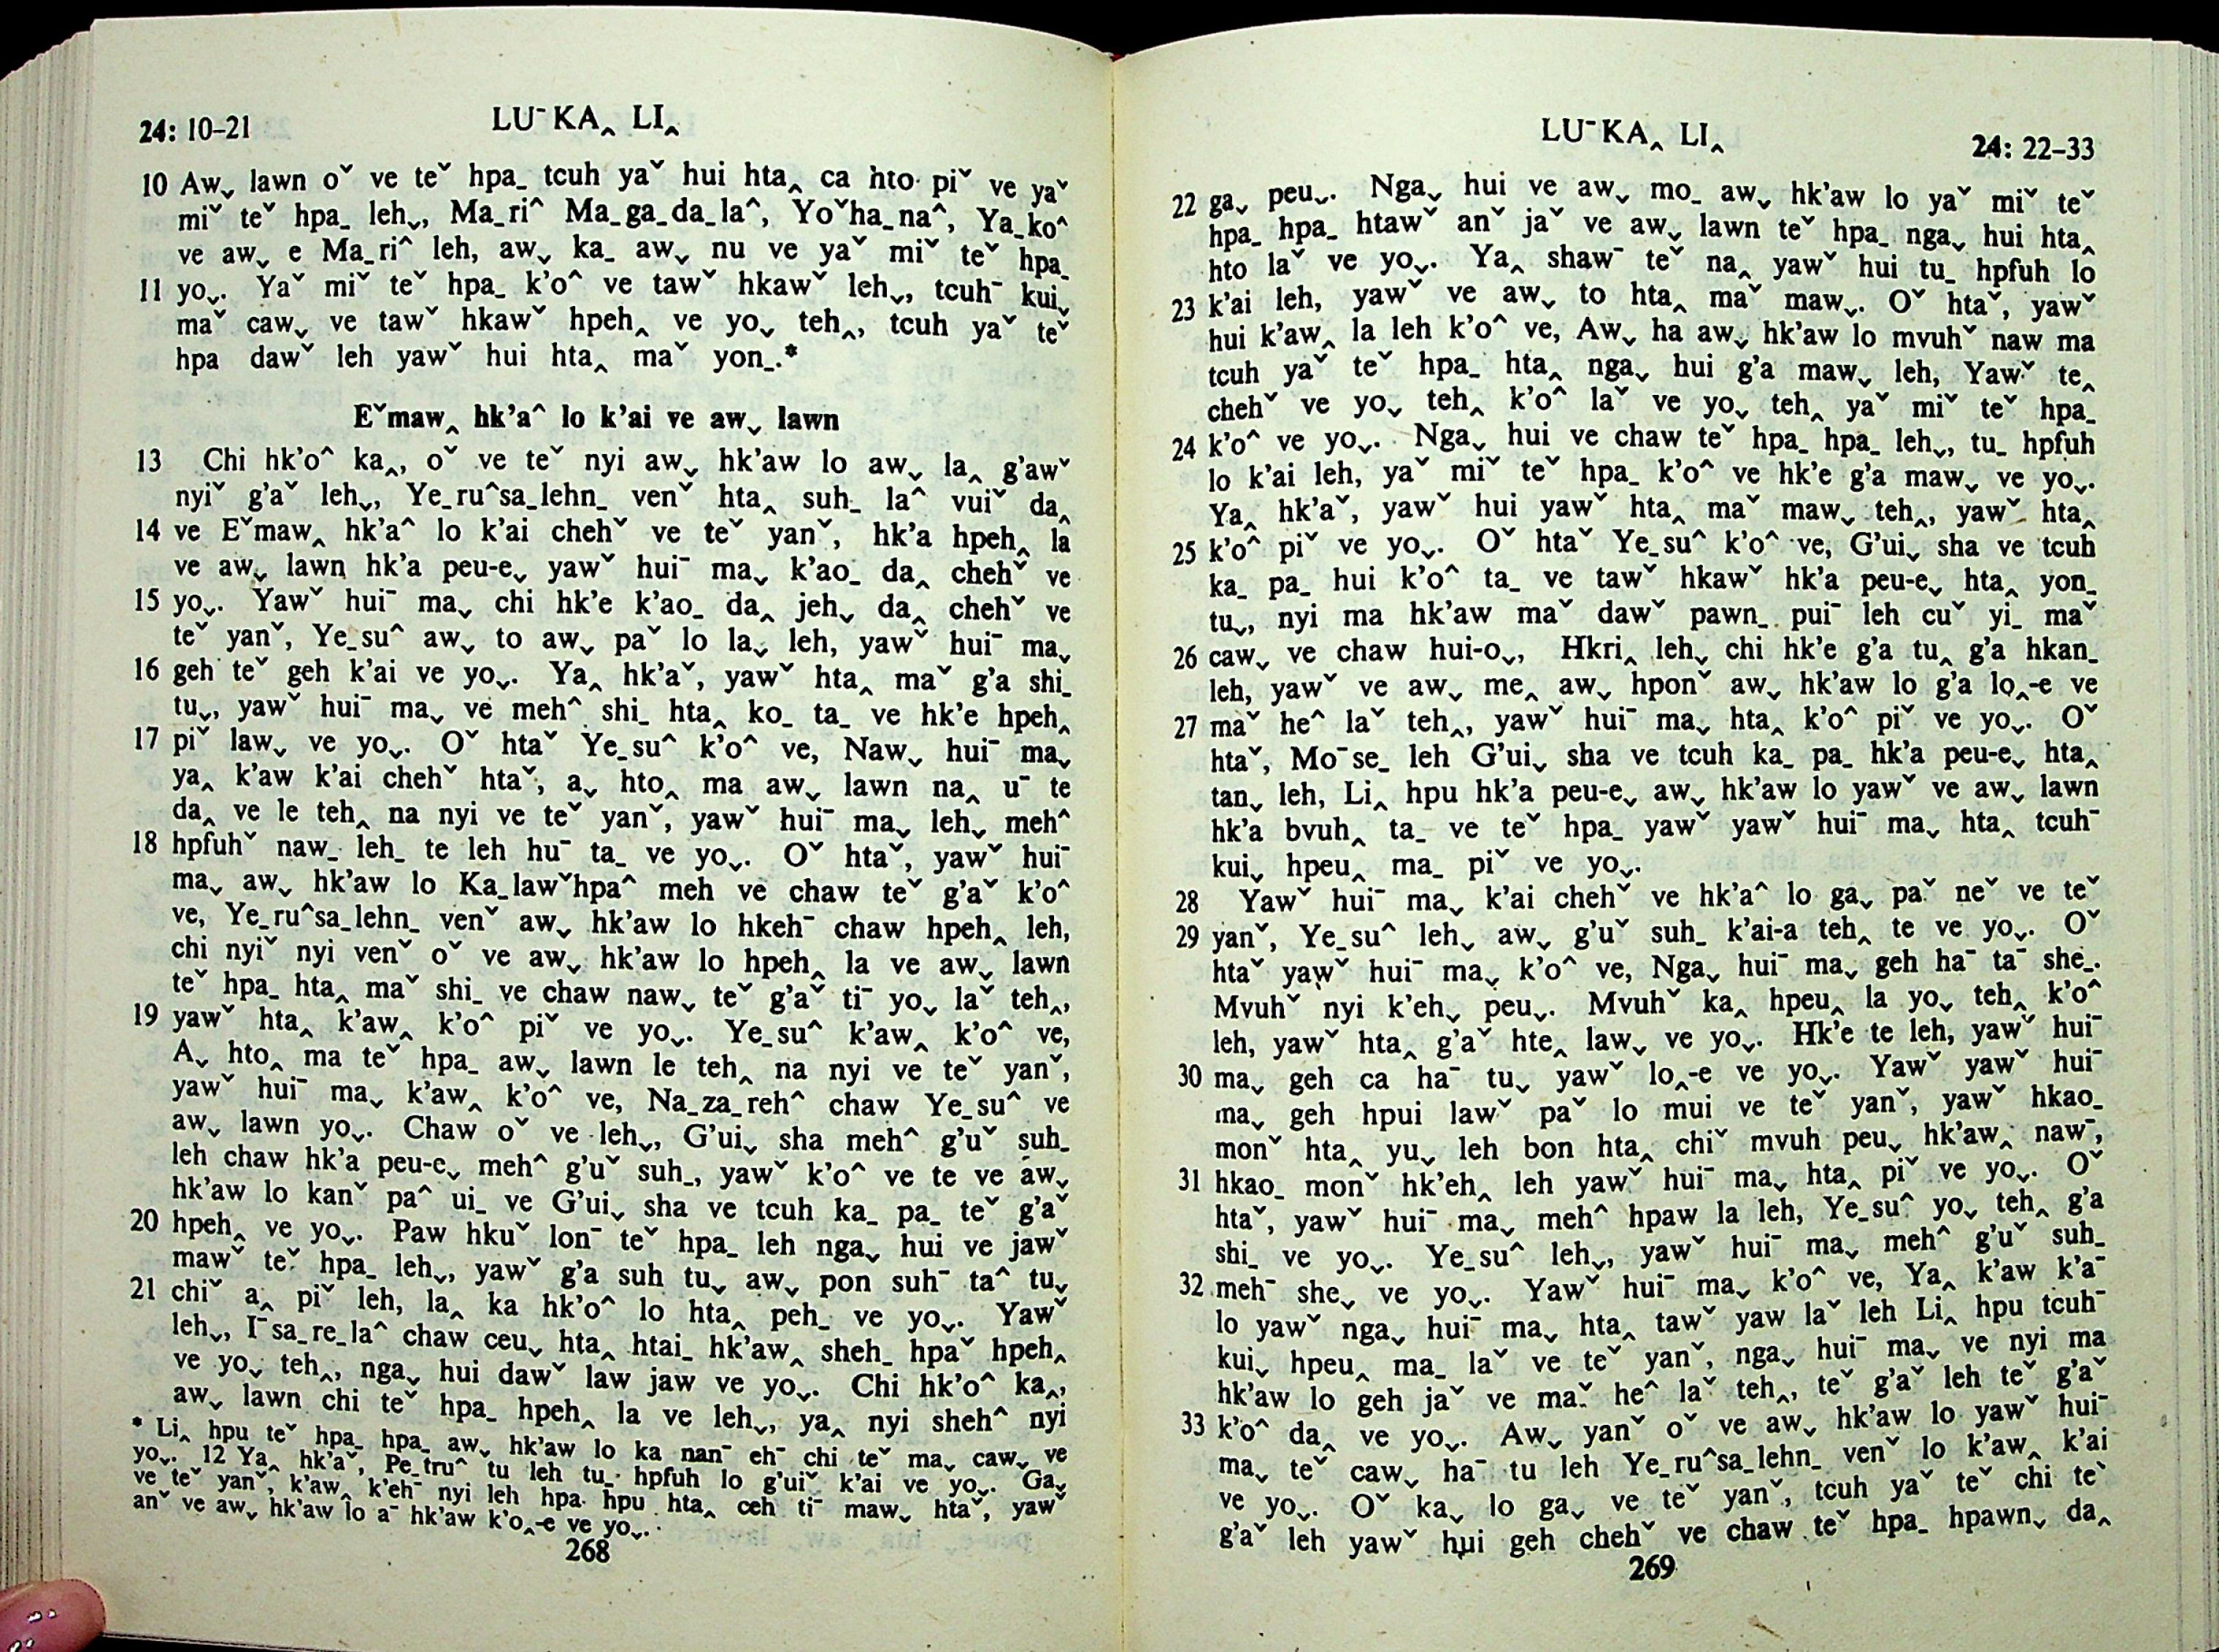 24: 10–21
LUˉ KA‸ LI‸
10 Aw˯ lawn oˇ ve teˇ hpaˍ tcuh yaˇ hui hta‸ ca hto piˇ ve yaˇ
miˇ teˇ hpaˍ leh˯, Maˍriˆ Maˍgaˍdaˍlaˆ, Yoˇhaˍnaˆ, Yaˍkoˆ
ve aw˯ e Maˍriˆ leh, aw˯ kaˍ aw˯ nu ve yaˇ miˇ teˇ hpaˍ
11 yo˯. Yaˇ miˇ teˇ hpaˍ k'oˆ ve tawˇ hkawˇ leh˯, tcuhˉ kui˯
maˇ caw˯ ve tawˇ hkawˇ hpeh‸ ve yo˯ teh‸, tcuh yaˇ teˇ
hpa dawˇ leh yawˇ hui hta‸ maˇ yonˍ.*
Eˇmaw‸ hk'aˆ lo k'ai ve aw˯ lawn
13 Chi hk'oˆ ka‸, oˇ ve teˇ nyi aw˯ hk'aw lo aw˯ la‸ g'awˇ
nyiˇ g'aˇ leh˯, Yeˍruˆsaˍlehnˍ venˇ hta‸ suhˍ laˆ vuiˇ da‸
14 ve Eˇmaw‸ hk'aˆ lo k'ai chehˇ ve teˇ yanˇ, hk'a hpeh‸ la
ve aw˯ lawn hk'a peu-e˯ yawˇ huiˉ ma˯ k'aoˍ da‸ chehˇ ve
15 yo˯. Yawˇ huiˉ ma˯ chi hk'e k'aoˍ da‸ jeh˯ da‸ chehˇ ve
teˇ yanˇ, Yeˍsuˆ aw˯ to aw˯ paˇ lo la˯ leh, yawˇ huiˉ ma˯
16 geh teˇ geh k'ai ve yo˯. Ya‸ hk'aˇ, yawˇ hta‸ maˇ g'a shiˍ
tu˯, yawˇ huiˉ ma˯ ve mehˆ shiˍ hta‸ koˍ taˍ ve hk'e hpeh‸
17 piˇ law˯ ve yo˯. Oˇ htaˇ Yeˍsuˆ k'oˆ ve, Naw˯ huiˉ ma˯
ya‸ k'aw k'ai chehˇ htaˇ, a˯ hto‸ ma aw˯ lawn na‸ uˉ te
da‸ ve le teh‸ na nyi ve teˇ yanˇ, yawˇ huiˉ ma˯ leh˯ mehˆ
18 hpfuhˇ nawˍ lehˍ te leh huˉ taˍ ve yo˯. Oˇ htaˇ, yawˇ huiˉ
ma˯ aw˯ hk'aw lo Kaˍlawˇhpaˆ meh ve chaw teˇ g'aˇ k'oˆ
ve, Yeˍruˆsaˍlehnˍ venˇ aw˯ hk'aw lo hkehˉ chaw hpeh‸ leh,
chi nyiˇ nyi venˇ oˇ ve aw˯ hk'aw lo hpeh‸ la ve aw˯ lawn
teˇ hpaˍ hta‸ maˇ shiˍ ve chaw naw˯ teˇ g'aˇ tiˉ yo˯ laˇ teh‸,
19 yawˇ hta‸ k'aw‸ k'oˆ piˇ ve yo˯. Yeˍsuˆ k'aw‸ k'oˆ ve,
A˯ hto‸ ma teˇ hpaˍ aw˯ lawn le teh‸ na nyi ve teˇ yanˇ,
yawˇ huiˉ ma˯ k'aw‸ k'oˆ ve, Naˍzaˍrehˆ chaw Yeˍsuˆ ve
aw˯ lawn yo˯. Chaw oˇ ve leh˯, G'ui˯ sha mehˆ g'uˇ suhˍ
leh chaw hk'a peu-e˯ mehˆ g'uˇ suhˍ, yawˇ k'oˆ ve te ve aw˯
hk'aw lo kanˇ paˆ uiˍ ve G'ui˯ sha ve tcuh kaˍ paˍ teˇ g'aˇ
20 hpeh˯ ve yo˯. Paw hkuˇ lonˉ teˇ hpaˍ leh nga˯ hui ve jawˇ
mawˇ teˇ hpaˍ leh˯, yawˇ g'a suh tu˯ aw˯ pon suhˉ taˆ tu˯
21 chiˇ a‸ piˇ leh, la‸ ka hk'oˆ lo hta‸ pehˍ ve yo˯. Yawˇ
leh˯, Iˉsaˍreˍlaˆ chaw ceu˯ hta‸ htaiˍ hk'aw‸ shehˍ hpaˇ hpeh‸
ve yo˯ teh‸, nga˯ hui dawˇ law jaw ve yo˯. Chi hk'oˆ ka‸,
aw˯ lawn chi teˇ hpaˍ hpeh‸ la ve leh˯, ya‸ nyi shehˆ nyi
* Li‸ hpu teˇ hpaˍ hpaˍ aw˯ hk'aw lo ka nanˉ ehˉ chi teˇ ma˯ caw˯ ve
yo˯. 12 Ya‸ hk'aˇ, Peˍtruˆ tu leh tuˍ hpfuh lo g'uiˇ k'ai ve yo˯. Ga˯
ve teˇ yanˇ, k'aw‸ k'ehˉ nyi leh hpa hpu hta‸ ceh tiˉ maw˯ htaˇ, yawˇ
anˇ ve aw˯ hk'aw lo aˉ hk'aw k'o‸-e ve yo˯.
268
LUˉ KA‸ LI‸
24: 22–33
22 ga˯ peu˯. Nga˯ hui ve aw˯ moˍ aw˯ hk'aw lo yaˇ miˇ teˇ
hpaˍ hpaˍ htawˇ anˇ jaˇ ve aw˯ lawn teˇ hpaˍ nga˯ hui hta‸
hto laˇ ve yo˯. Ya‸ shawˉ teˇ na‸ yawˇ hui tuˍ hpfuh lo
23 k'ai leh, yawˇ ve aw˯ to hta‸ maˇ maw˯. Oˇ htaˇ, yawˇ
hui k'aw‸ la leh k'oˆ ve, Aw˯ ha aw˯ hk'aw lo mvuhˇ naw ma
tcuh yaˇ teˇ hpaˍ hta‸ nga˯ hui g'a maw˯ leh, Yawˇ te‸
chehˇ ve yo˯ teh‸ k'oˆ laˇ ve yo˯ teh‸ yaˇ miˇ teˇ hpaˍ
24 k'oˆ ve yo˯. Nga˯ hui ve chaw teˇ hpaˍ hpaˍ leh˯, tuˍ hpfuh
lo k'ai leh, yaˇ miˇ teˇ hpaˍ k'oˆ ve hk'e g'a maw˯ ve yo˯.
Ya‸ hk'aˇ, yawˇ hui yawˇ hta‸ maˇ maw˯ teh‸, yawˇ hta‸
25 k'oˆ piˇ ve yo˯. Oˇ htaˇ Yeˍsuˆ k'oˆ ve, G'ui˯ sha ve tcuh
kaˍ paˍ hui k'oˆ taˍ ve tawˇ hkawˇ hk'a peu-e˯ hta‸ yonˍ
tu˯, nyi ma hk'aw maˇ dawˇ pawnˍ puiˉ leh cuˇ yiˍ maˇ
26 caw˯ ve chaw hui-o˯, Hkri‸ leh˯ chi hk'e g'a tu‸ g'a hkanˍ
leh, yawˇ ve aw˯ me‸ aw˯ hponˇ aw˯ hk'aw lo g'a lo‸-e ve
27 maˇ heˆ laˇ teh‸, yawˇ huiˉ ma˯ hta‸ k'oˆ piˇ ve yo˯. Oˇ
htaˇ, Moˉseˍ leh G'ui˯ sha ve tcuh kaˍ paˍ hk'a peu-e˯ hta‸
tan˯ leh, Li‸ hpu hk'a peu-e˯ aw˯ hk'aw lo yawˇ ve aw˯ lawn
hk'a bvuh‸ taˍ ve teˇ hpaˍ yawˇ yawˇ huiˉ ma˯ hta‸ tcuhˉ
kui˯ hpeu‸ maˍ piˇ ve yo˯.
28 Yawˇ huiˉ ma˯ k'ai chehˇ ve hk'aˆ lo ga˯ paˇ neˇ ve teˇ
29 yanˇ, Yeˍsuˆ leh˯ aw˯ g'uˇ suhˍ k'ai-a teh‸ te ve yo˯. Oˇ
htaˇ yawˇ huiˉ ma˯ k'oˆ ve, Nga˯ huiˉ ma˯ geh haˉ taˉ she˯.
Mvuhˇ nyi k'eh˯ peu˯. Mvuhˇ ka‸ hpeu‸ la yo˯ teh‸ k'oˆ
leh, yawˇ hta‸ g'aˇ hte‸ law˯ ve yo˯. Hk'e te leh, yawˇ huiˉ
30 ma˯ geh ca haˉ tu˯ yawˇ lo‸-e ve yo˯. Yawˇ yawˇ huiˉ
ma˯ geh hpui lawˇ paˇ lo mui ve teˇ yanˇ, yawˇ hkaoˍ
monˇ hta‸ yu˯ leh bon hta‸ chiˇ mvuh peu˯ hk'aw‸ nawˉ,
31 hkaoˍ monˇ hk'eh‸ leh yawˇ huiˉ ma˯ hta‸ piˇ ve yo˯. Oˇ
htaˇ, yawˇ huiˉ ma˯ mehˆ hpaw la leh, Yeˍsuˆ yo˯ teh‸ g'a
shiˍ ve yo˯. Yeˍsuˆ leh˯, yawˇ huiˉ ma˯ mehˆ g'uˇ suhˍ
32 mehˉ she˯ ve yo˯. Yawˇ huiˉ ma˯ k'oˆ ve, Ya‸ k'aw k'aˉ
lo yawˇ nga˯ huiˉ ma˯ hta‸ tawˇ yaw laˇ leh Li‸ hpu tcuhˉ
kui˯ hpeu‸ maˍ laˇ ve teˇ yanˇ, nga˯ huiˉ ma˯ ve nyi ma
hk'aw lo geh jaˇ ve maˇ heˆ laˇ teh‸, teˇ g'aˇ leh teˇ g'aˇ
33 k'oˆ da‸ ve yo˯. Aw˯ yanˇ oˇ ve aw˯ hk'aw lo yawˇ huiˉ
ma˯ teˇ caw˯ haˉ tu leh Yeˍruˆsaˍlehnˍ venˇ lo k'aw‸ k'ai
ve yo˯. Oˇ ka˯ lo ga˯ ve teˇ yanˇ, tcuh yaˇ teˇ chi teˇ
g'aˇ leh yawˇ hui geh chehˇ ve chaw teˇ hpaˍ hpawn˯ da‸
269